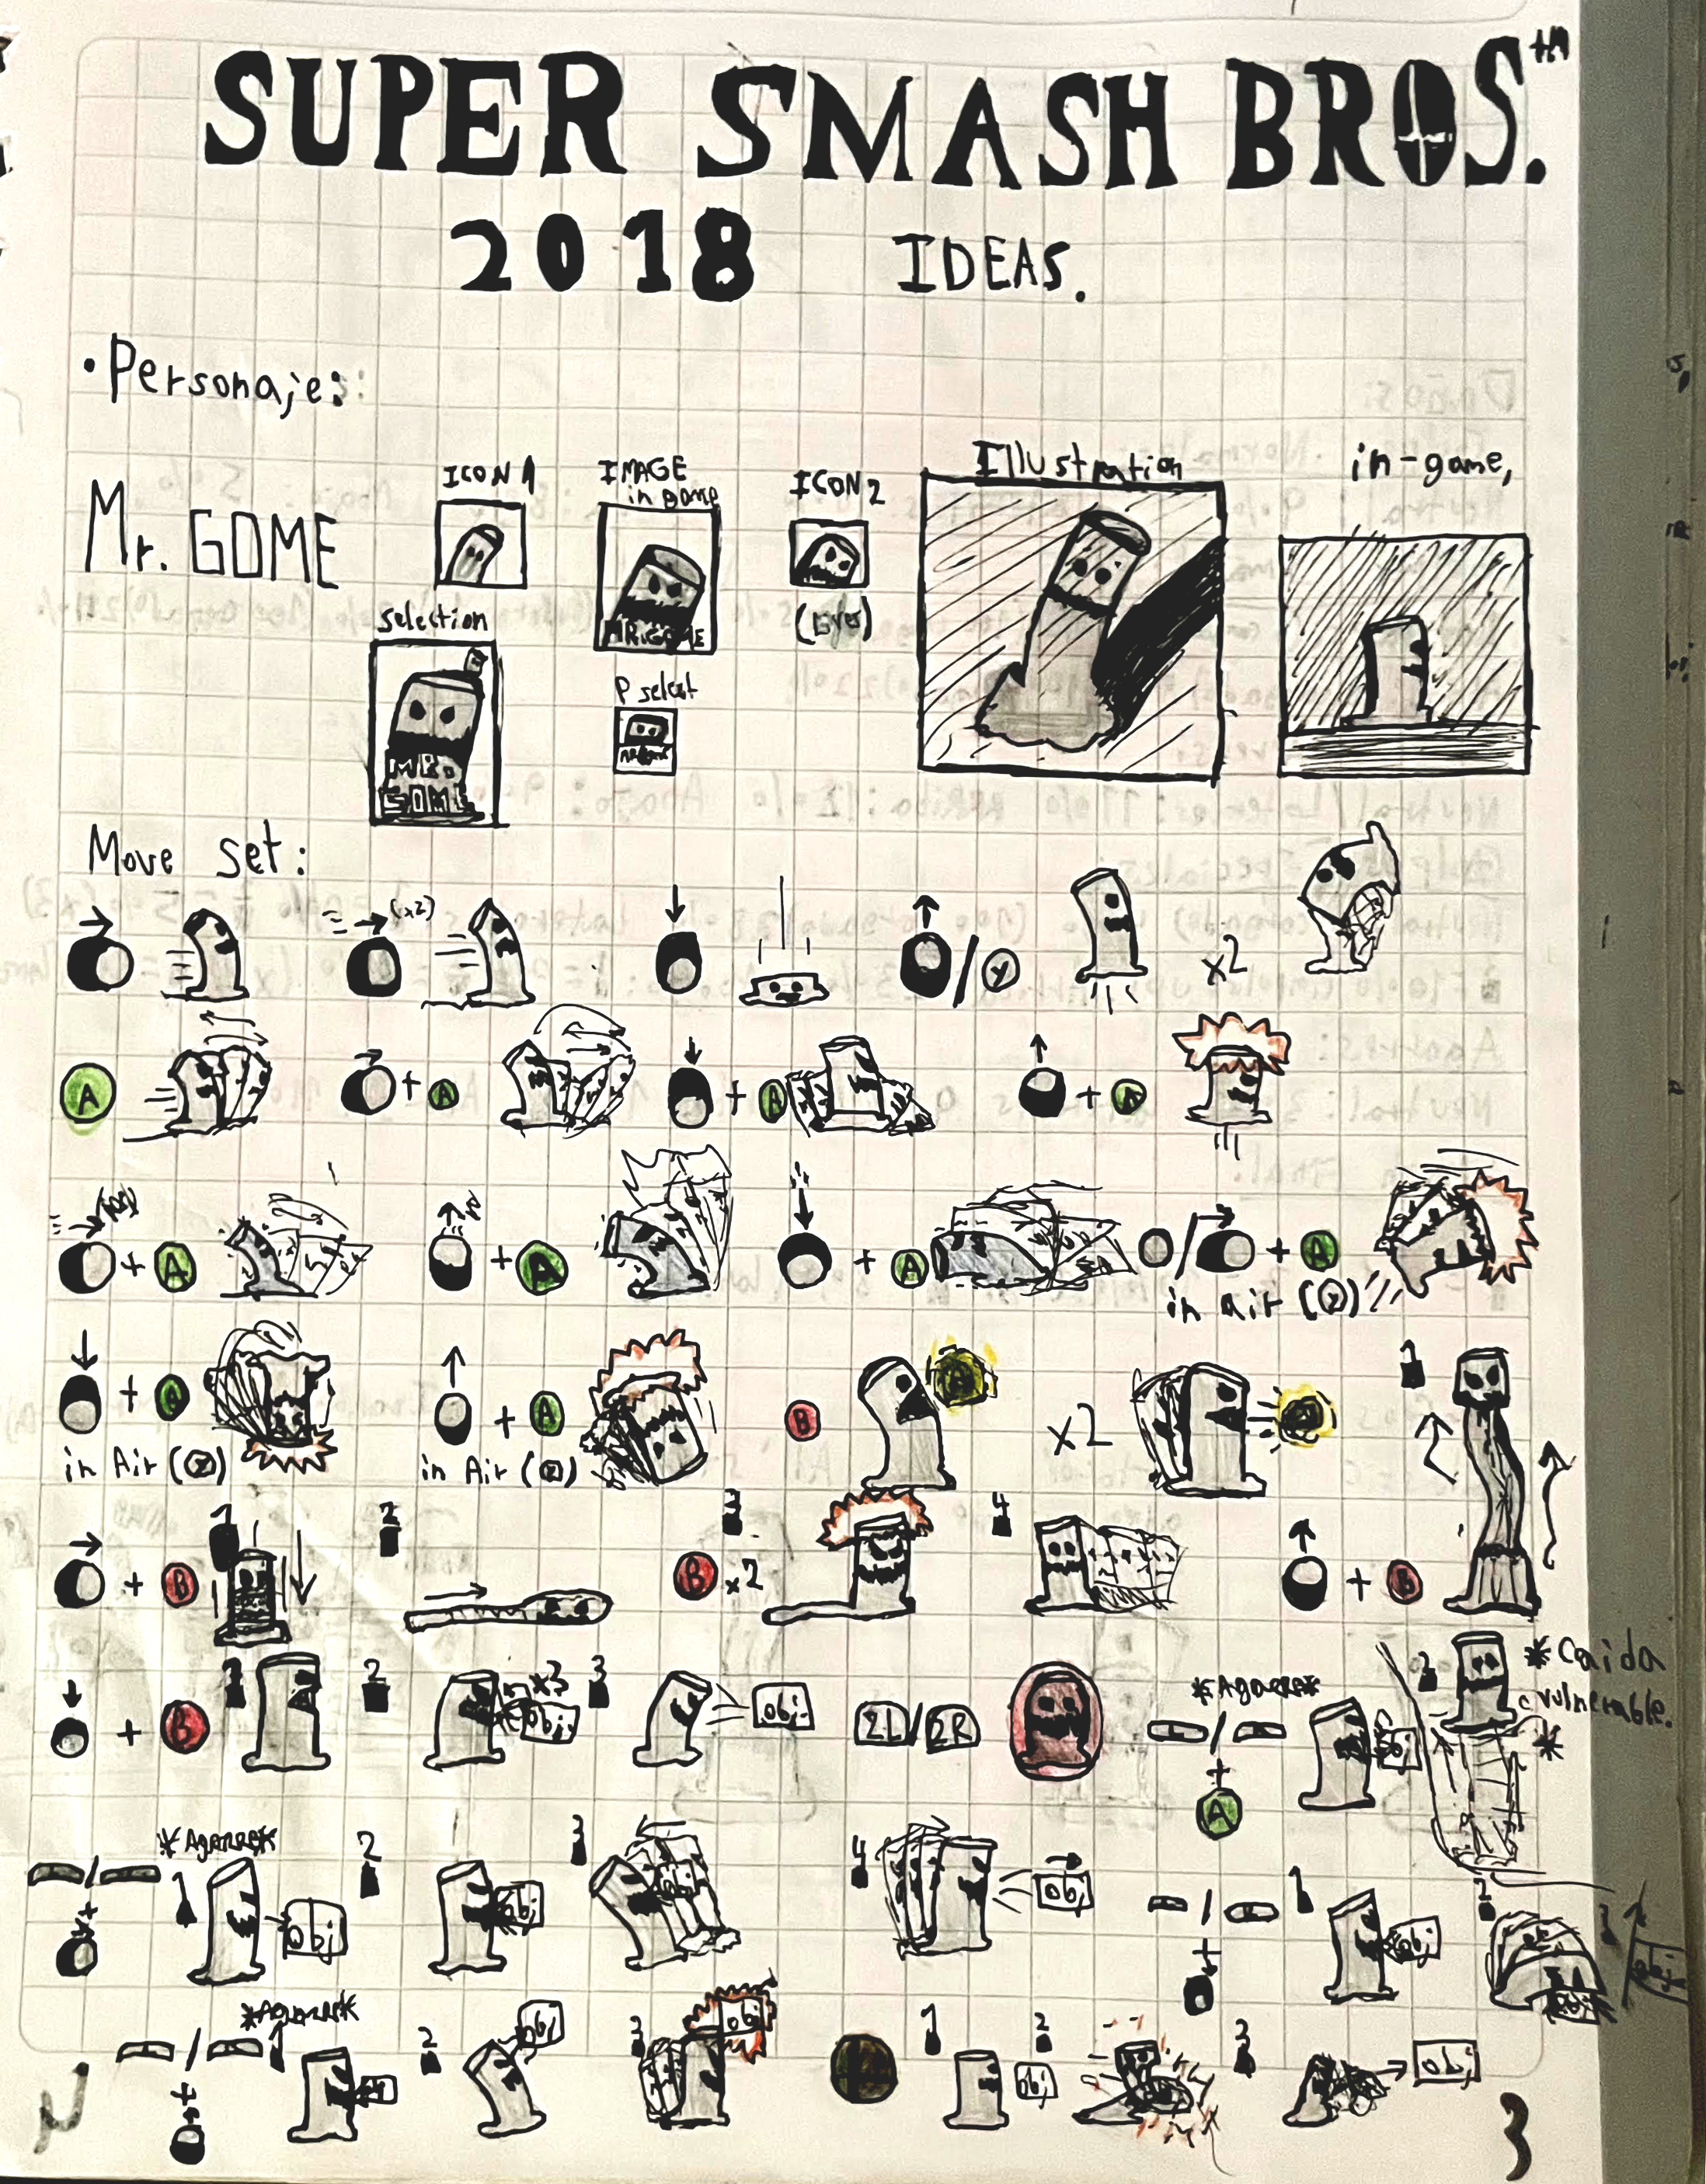 SUPER SMASH BROS.™
2018 IDEAS.
• Personaje:
Mr. GOME
ICON 1
IMAGE
in game
MR. GOME
ICON 2
(Lives)
Illustration
in-game,
selection
MR.
GOME
P select
Move set:
(x2)
/ Y
x2
A
+ A
+ A
+ A
+ A
+ A
+ A
/ + A
in air
+ A
in Air
+ A
in Air
B
x2
1
+ B
1
2
B x2
3
4
+ B
+ B
1
2
x3
obj.
3
obj.
2L/2R
*Agarre*
/
+
A
obj
2
*Caida
vulnerable.
*
*Agarre*
/
+
1
obj
2
obj
3
obj
4
obj
/
+
1
obj
2
obj
3
obj
*Agarre*
/
+
1
2
obj
3
obj
1
obj
2
3
obj
3